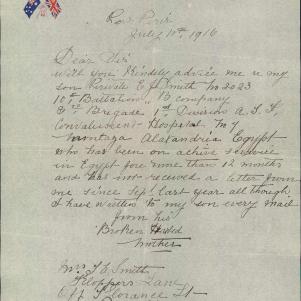 Port Pirie
July 11th 1916
Dear Sir
will you Kindly advise me re my
son Private E J Smith No 2023
10th Battalion B company
3rd Brigade 1st Division A.I.F.
Convalescent Hospital No 7
Alaxandria Egypt
who has been on active service
in Egypt for more than 12 months
and has not received a letter from
me since Sept last year all though
I have written to my son every mail
from his
Broken Harted
Mother
Mrs Smith
Lane
Off Florance St